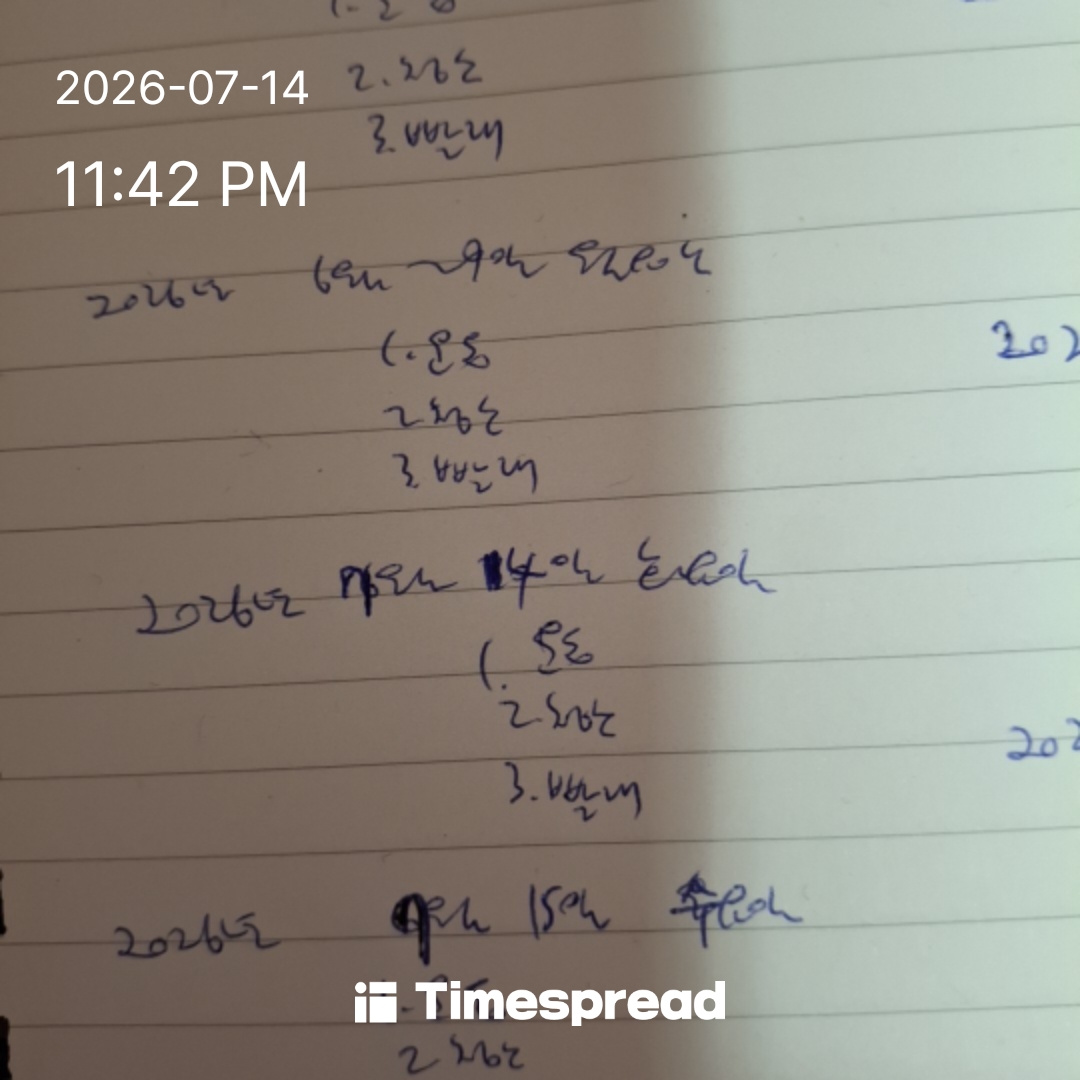 2. 청소
2026-07-14
3. 빨래
11:42 PM
2026년 6월 9일 월요일
1. 운동
2 청소
3. 빨래
202
2026년 7월 14일 화요일
1. 운동
2. 청소
202
3. 빨래
2026년 7월 15일 수요일
Timespread
2 청소